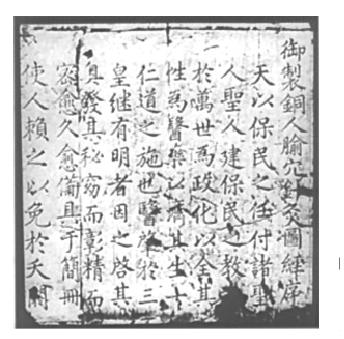 御製銅人腧穴鍼灸圖經序
天以保民之任付諸聖
人聖人建保民之教
於萬世爲政化以全其
性爲醫藥以濟其生
仁道之施也醫肇於三
皇継有明者因之啓其
真發其秘窈而彰精而
密愈久愈備具于簡冊
使人賴之以免於夭閼